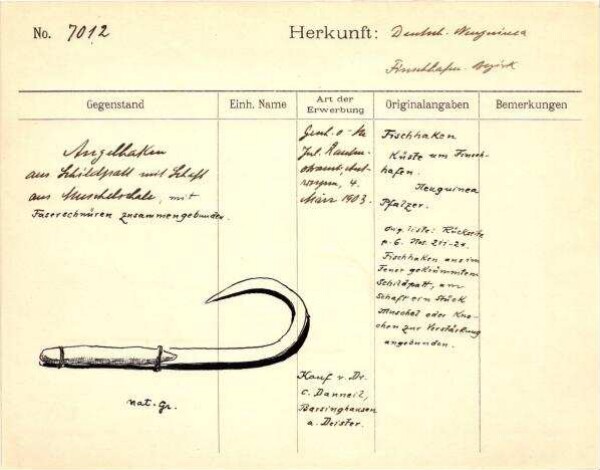 No. 7012
Herkunft: Deutsch-Neuguinea
Finschhafen-Bezirk
Gegenstand
Einh. Name
Art der
Erwerbung
Originalangaben
Bemerkungen
Angelhaken
aus Schildpatt mit Schaft
aus Muschelschale, mit
Faserschnüren zusammengebunden.
4.
März 1903.
Kauf v. Dr.
C. Danneil,
Barsinghausen
a. Deister.
Fischhaken
Küste um Finsch-
hafen.
Neuguinea
Pfalzer.
Orig. liste: Rückseite
p. 6. Nos. 211-20.
Fischhaken aus im
Feuer gekrümmtem
Schildpatt, am
Schaft ein Stück
Muschel oder Kno-
chen zur Verstärkung
angebunden.
nat. Gr.